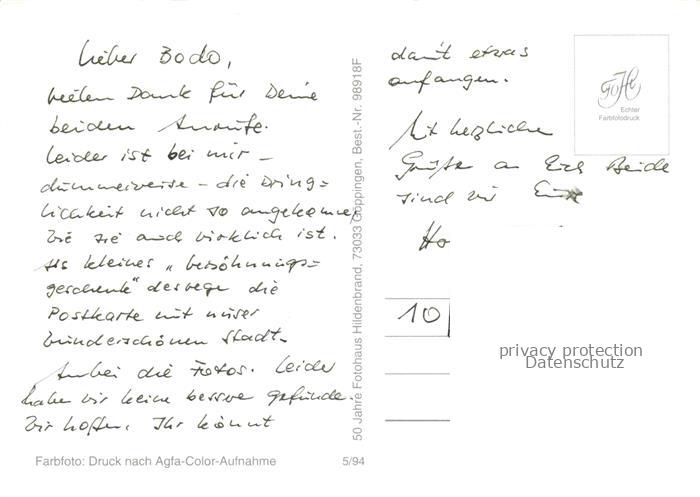 lieber Bodo,
vielen Dank für Deine
beiden Anrufe.
Leider ist bei mir -
dummerweise - die Dring=
lichkeit nicht so angekommen,
wie sie auch wirklich ist.
Als kleines „Versöhnungs=
geschenk" deswege die
Postkarte mit unser
wunderschönen Stadt.
Anbei die Fotos. Leider
habe wir keine bessere gefunde.
Wir hoffen, Ihr könnt
damit etwas
anfangen.
Mit herzliche
Grüße an Euch Beide
sind wir Eure
Ho
10
GoHi
Echter
Farbfotodruck
50 Jahre Fotohaus Hildenbrand, 73033 Göppingen, Best.-Nr. 98918F
privacy protection
Datenschutz
Farbfoto: Druck nach Agfa-Color-Aufnahme 5/94